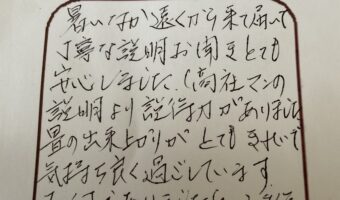 暑いなか遠くから来て届いて
丁寧な説明お聞きとても
安心しました。(商社マンの
説明より説得力がありました
畳の出来上がりがとてもきれいで
気持ち良く過ごしています